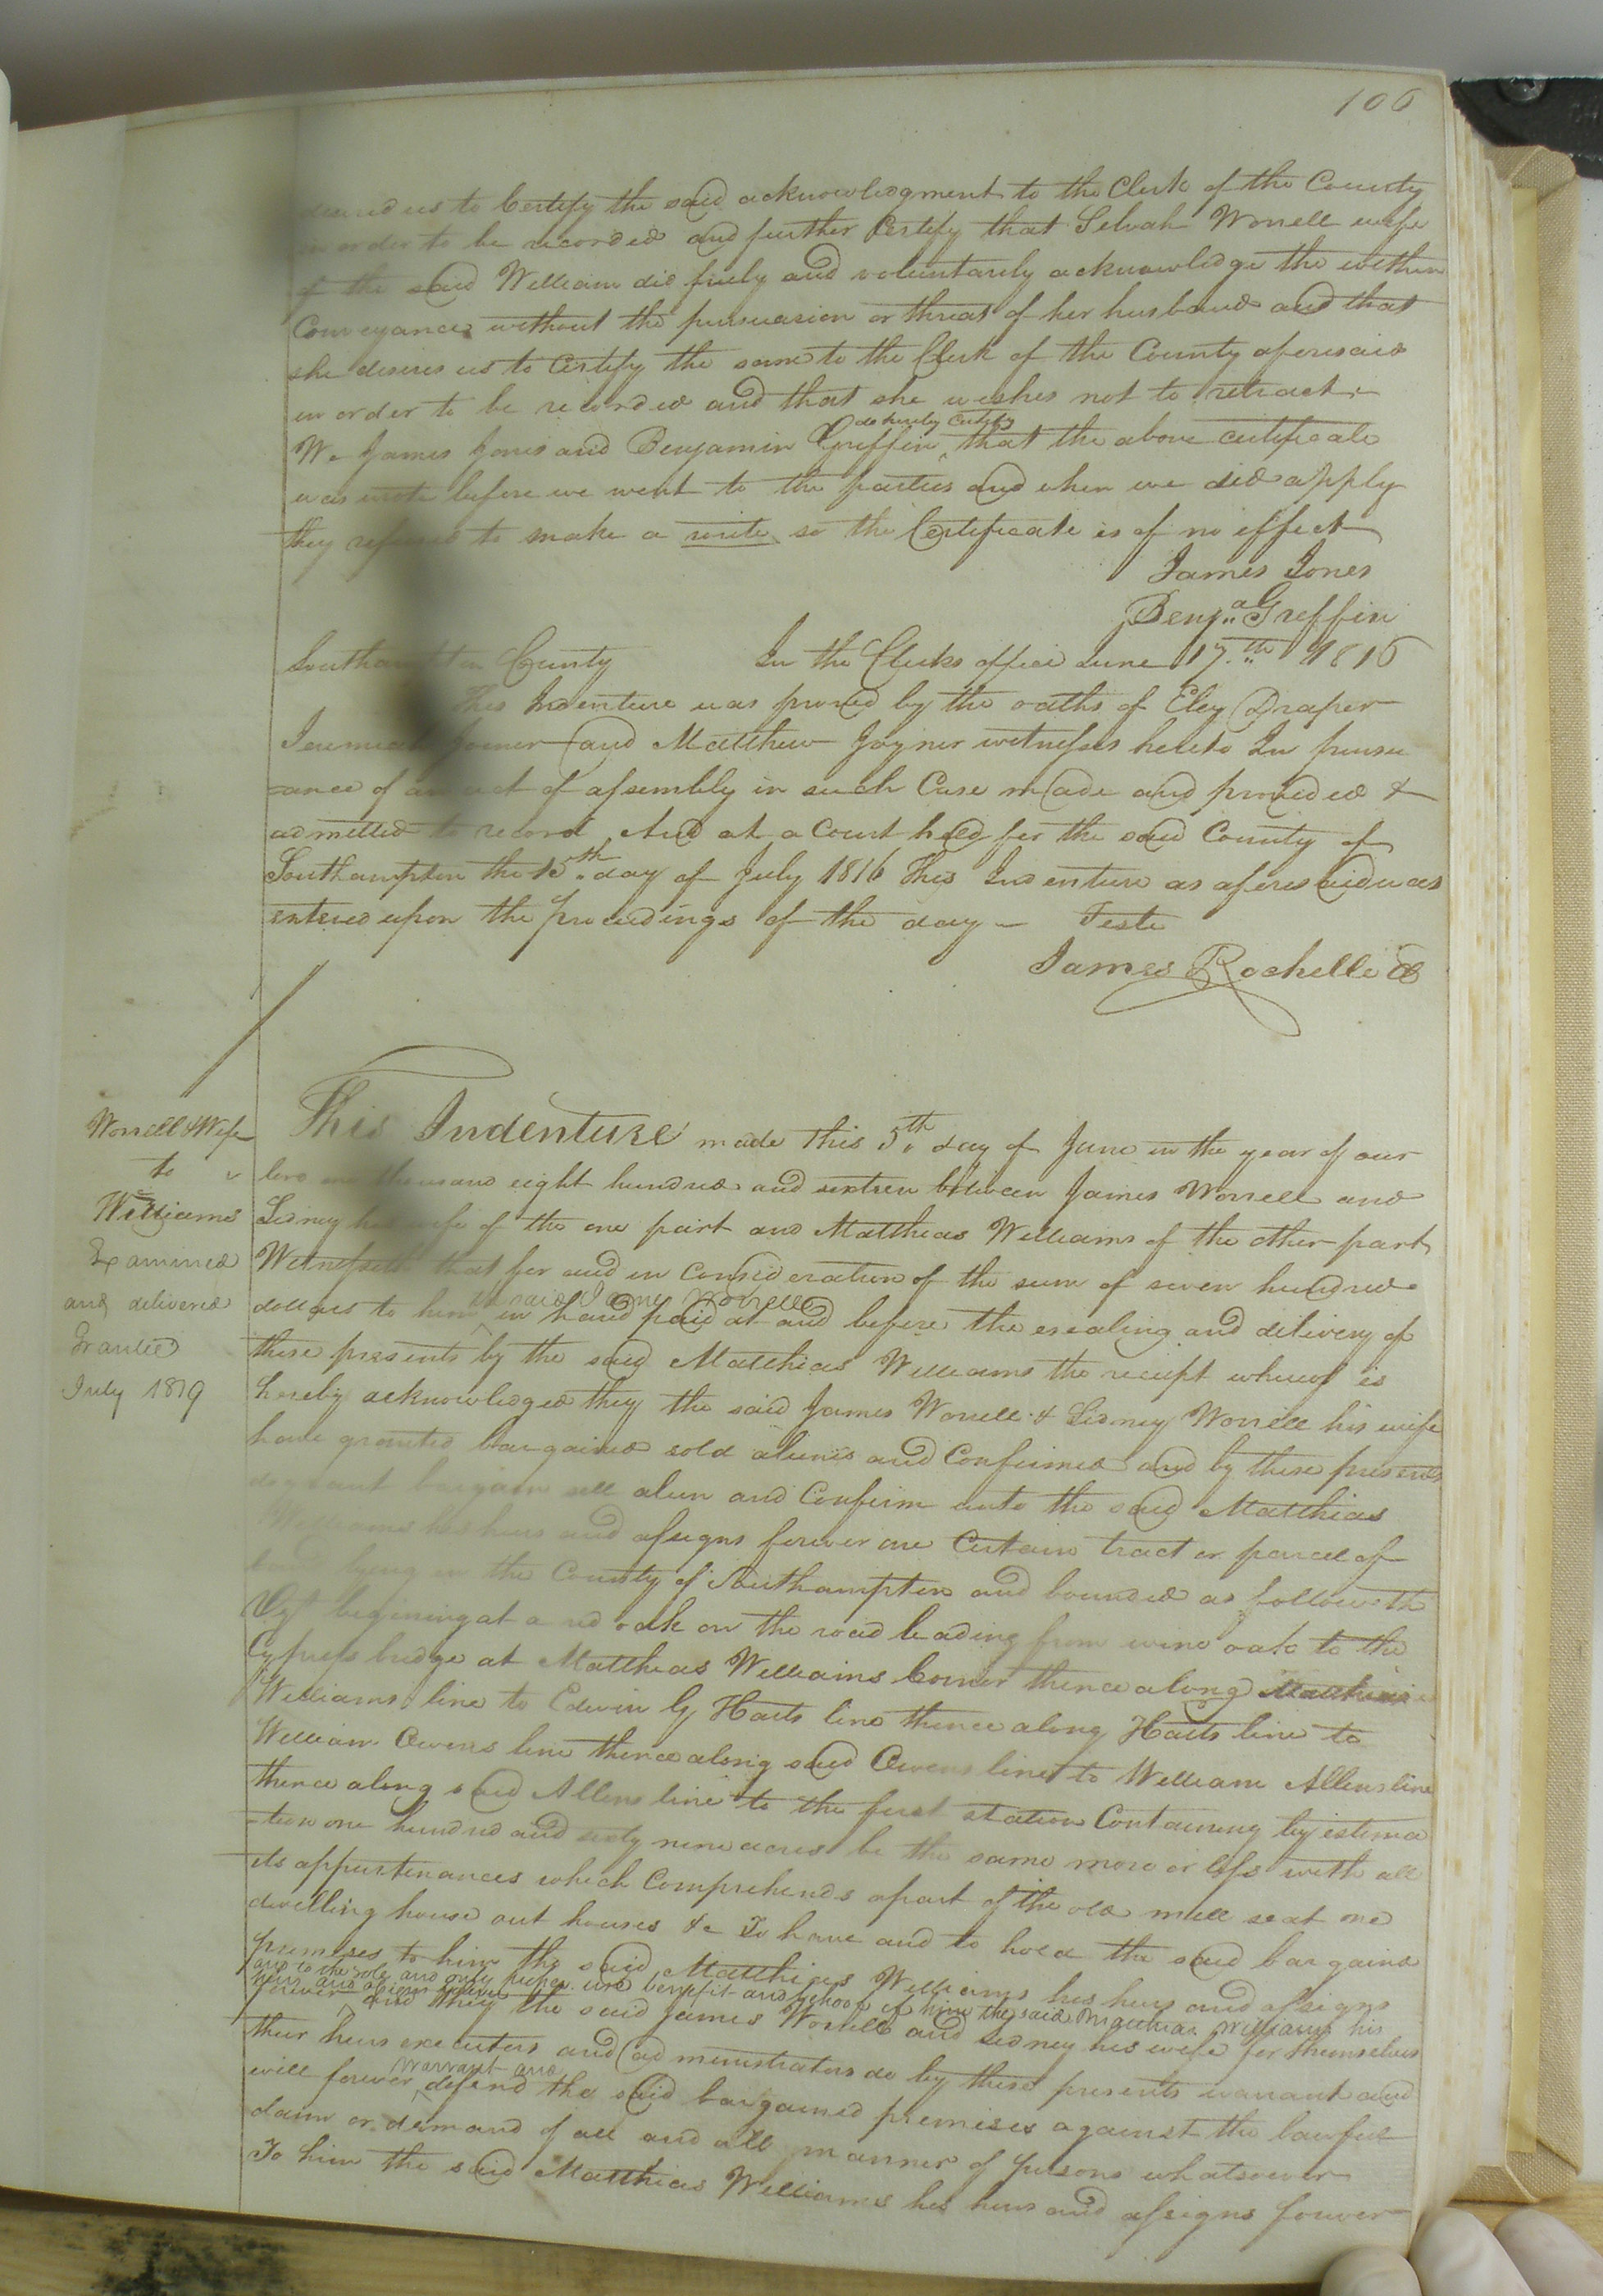 106
desired us to Certify the said acknowledgment to the Clerk of the County
in order to be recorded and further Certify that Selvah Worrell wife
of the said William did freely and voluntarily acknowledge the within
Conveyance without the pursuasion or threat of her husband and that
she desires us to Certify the same to the Clerk of the County aforesaid
in order to be recorded and that she wishes not to retract
do hereby Certify
We James Jones and Benjamin Griffin that the above certificate
was wrote before we went to the parties and when we did apply
they refused to make a write so the Certificate is of no effect
James Jones
Benja Greffin
Southampton County In the Clerks office June 17th 1816
This Indenture was proved by the oaths of Eley Draper
Jeremiah Joiner and Matthew Joyner witnesses hereto In pursu
-ance of an act of assembly in such Case made and provided &
admitted to record And at a Court held for the said County of
Southampton the 15th day of July 1816 This Indenture as aforesaid was
entered upon the proceedings of the day Teste
James Rochelle
Worrell & Wife
to
Williams
Examined
and delivered
Grantee
July 1819
This Indenture made this 5th day of June in the year of our
lord one thousand eight hundred and sixteen between James Worrell and
Sidney his wife of the one part and Matthias Williams of the other part
Witnesseth that for and in consideration of the sum of seven hundred
the said James Worrell
dollars to him in hand paid at and before the ensealing and delivery of
these presents by the said Matthias Williams the receipt whereof is
hereby acknowledged they the said James Worrell & Sidney Worrell his wife
have granted bargained sold aliened and Confirmed and by these presents
do grant bargain sell alien and Confirm unto the said Matthias
Williams his heirs and assigns forever one Certain tract or parcel of
land lying in the County of Southampton and bounded as followeth
Vizt begining at a red oak on the road leading from wine oak to the
Cypress bridge at Matthias Williams Corner thence along Matthias
Williams line to Edwin G Harts line thence along Harts line to
William Owens line thence along said Owens line to William Allens line
thence along said Allens line to the first station Containing by estima
-tion one hundred and sixty nine acres be the same more or less with all
its appurtenances which Comprehends apart of the old mill seat one
dwelling house out houses &c To have and to hold the said bargained
premises to him the said Matthias Williams his heirs and assigns
and to the sole and only proper use benefit and behoof of him the said Matthias Williams his
heirs and assigns forever
forever and they the said James Worrell and Sidney his wife for themselves
their heirs executors and administrators do by these presents warrant and
warrant and
will forever defend the said bargained premises against the lawful
claim or demand of all and all manner of persons whatsoever
To him the said Matthias Williams his heirs and assigns forever